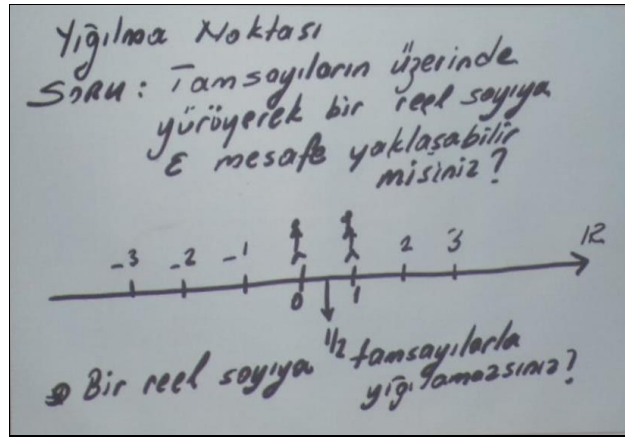 Yığılma Noktası
SORU: Tamsayıların üzerinde
yürüyerek bir reel sayıya
ε mesafe yaklaşabilir
misiniz?
-3 -2 -1 0 1 2 3 R
1/2
Bir reel sayıya tamsayılarla
yığılamazsınız?